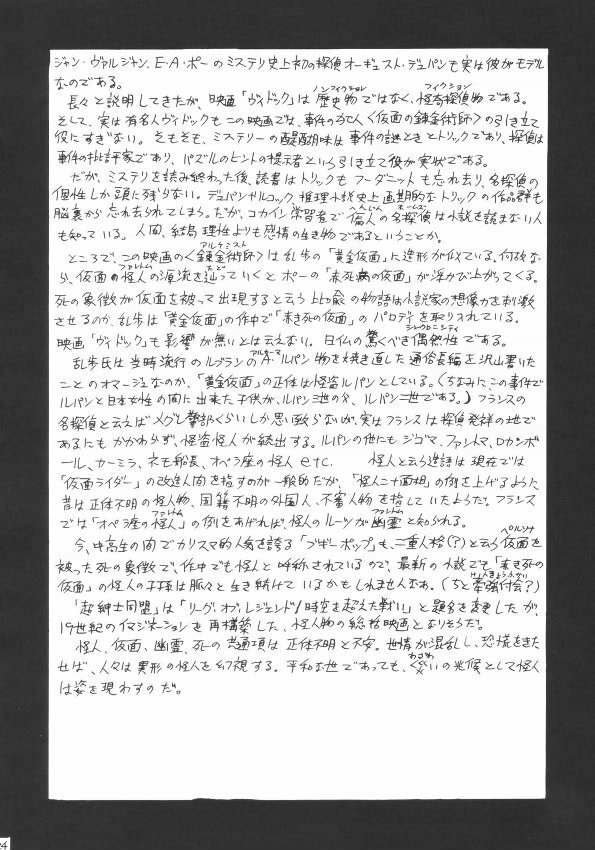 ジャン・ヴァルジャン、E・A・ポーのミステリ史上初の探偵オーギュスト・デュパンも実は彼がモデル
なのである。
長々と説明してきたが、映画「ヴィドック」は歴史物ではなく、怪奇探偵物である。
ノンフィクション フィクション
そして、実は有名人ヴィドックもこの映画では、事件の〈仮面の錬金術師〉の引き立て
役にすぎない。そもそも、ミステリーの醍醐味は事件の謎ときとトリックであり、探偵は
事件の批評家であり、パズルのヒントの提示者という引き立て役が実状である。
だが、ミステリを読み終わった後、読書はトリックもフーダニットも忘れ去り、名探偵の
個性しか頭に残らない。デュパンやルコック、推理小説史上画期的なトリックの作品群も
脳裏から忘れ去られてしまう。だが、コカイン常習者で偏人の名探偵は小説を読まない人
へんじん ホームズ
も知っている。人間、結局理性よりも感情の生き物であるということか。
ところで、この映画の〈錬金術師〉は乱歩の「黄金仮面」に造形が似ている。何故な
アルケミスト
ら、仮面の怪人の源流を辿っていくとポーの「赤死病の仮面」が浮かび上がってくる。
ファントム たど
死の象徴が仮面を被って出現すると云う比喩の物語は小説家の想像力を刺激
させるのか、乱歩は「黄金仮面」の作中で「赤き死の仮面」のパロディを取り入れている。
映画「ヴィドック」も影響が無いとは云えない。日仏の驚くべき偶然性である。
シンクロニシティ
乱歩氏は当時流行のルブランのA・ルパン物を焼き直した通俗長編を沢山書いた
アルセーヌ
ことのオマージュなのか、「黄金仮面」の正体は怪盗ルパンとしている。(ちなみにこの事件で
ルパンと日本女性の間に出来た子供が、ルパン三世の父、ルパン二世である。)フランスの
名探偵と云えばメグレ警部くらいしか思い致らないが、実はフランスは探偵発祥の地で
あるにもかかわらず、怪盗怪人が続出する。ルパンの他にもジゴマ、ファントマ、ロカンボ
ール、カーミラ、ネモ船長、オペラ座の怪人etc. 怪人と云う造語は現在では
「仮面ライダー」の改造人間を指すのが一般的だが、「怪人二十面相」の例を上げるように
昔は正体不明の怪人物、国籍不明の外国人、不審人物を指していたようだ。フランス
では「オペラ座の怪人」の例をあげれば、怪人のルーツが幽霊と知られる。
ファントム ファントム
今、中高生の間でカリスマ的人気を誇る「ブギーポップ」も、二重人格(?)と云う仮面を
ペルソナ
被った死の象徴で、作中でも怪人と呼称されているので、最新の小説でも「赤き死の
仮面」の怪人の子孫は脈々と生き続けているかもしれませんなあ。(ちと牽強付会?)
けんきょうふかい
「超紳士同盟」は「リーグ・オブ・レジェンド/時空を超えた戦い」と題名を変更したが、
19世紀のイマジネーションを再構築した、怪人物の総括映画となりそうだ。
怪人、仮面、幽霊、死の共通項は正体不明と不安。世情が混乱し、恐慌をきた
せば、人々は異形の怪人を幻視する。平和な世であっても、災いの兆候として怪人
わざわ
は姿を現わすのだ。
24